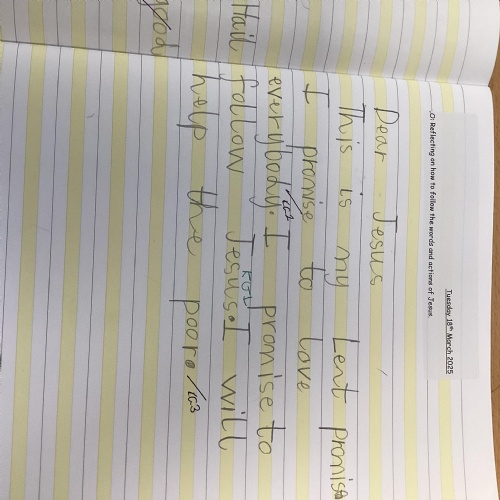 Tuesday 18th March 2025
.O: Reflecting on how to follow the words and actions of Jesus.
Dear Jesus
This is my Lent promise
I promise to love
everybody. I promise to
follow Jesus. I will
help the poor.
Hail
good